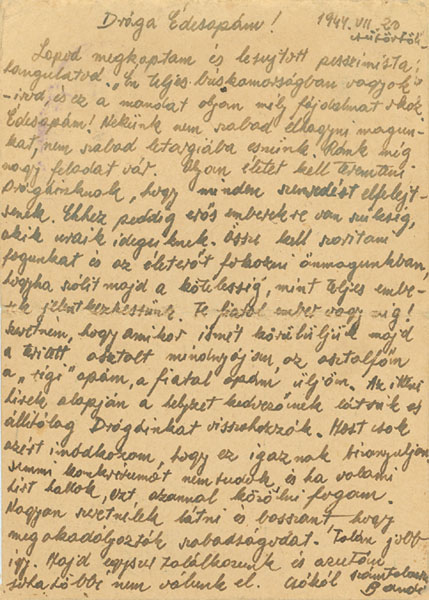 Drága Édesapám! 1944. VII. 20
csütörtök
Lapod megkaptam és lesujtott pesszimista
hangulatod. „Én teljes búskomorságban vagyok"
- irod és ez a mondat olyan mély fájdalmat okoz.
Édesapám! Nekünk nem szabad elhagyni magun-
kat, nem szabad letargiába esnünk. Ránk még
nagy feladat vár. Olyan életet kell teremteni
Drágáinknak, hogy minden szenvedést elfelejt-
senek. Ehhez peddig erős emberekre van szükség,
akik uraik idegeiknek. Össze kell szoritani
fogunkat és az életerőt fokozni önmagunkban,
hogyha szólit majd a kötelesség, mint teljes embe-
rek jelentkezhessünk. Te fiatal ember vagy még!
Szeretném, hogy amikor ismét körülüljük majd
a teritett asztalt mindnyájan, az asztalfőn
a „régi" apám, a fiatal apám üljön. Az itteni
hirek alapján a helyzet kedvezőnek látszik és
állitólag Drágáinkat visszahozzák. Most csak
azért imádkozom, hogy ez igaznak bizonyuljon.
Semmi konkrétumot nem tudok, és ha valami
hirt hallok, ezt azonnal közölni fogom.
Nagyon szeretnélek látni és bosszant hogy
megakadályozták szabadságodat. Talán jobb
igy. Majd egyszer találkozunk és azután
soha többé nem válunk el. Csókol számtalanszor
Bandi